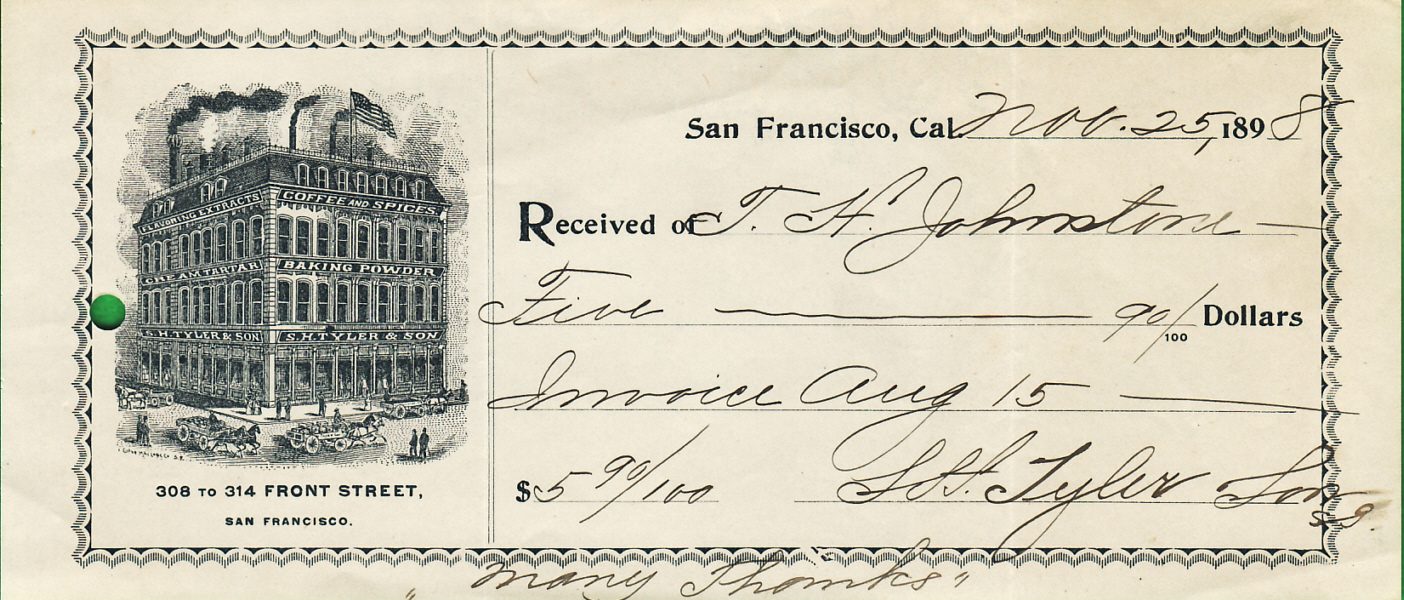 FLAVORING EXTRACTS
COFFEE AND SPICES
CREAM TARTAR
BAKING POWDER
S.H.TYLER & SON
S.H.TYLER & SON
308 TO 314 FRONT STREET,
SAN FRANCISCO.
San Francisco, Cal. Nov. 25, 1898
Received of T. H. Johnstone
Five 90/100 Dollars
Invoice Aug 15
$5 90/100 S.H. Tyler Son
"Many Thanks"